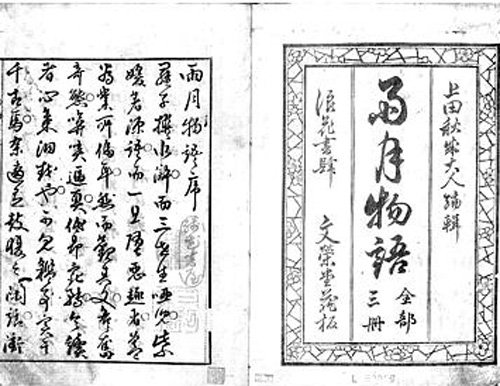 上田秋成大人編輯
雨月物語
全部
三冊
浪花書肆 文榮堂蔵板
雨月物語序
羅子撰水滸而三世生唖児紫
媛著源語而一旦堕悪趣者蓋
為業所偪耳然而觀其文各奮
奇態揜哢逼真低昂宛轉令讀
者心氣洞越也可見鑑事實于
千古焉余適有鼓腹之閑話衝